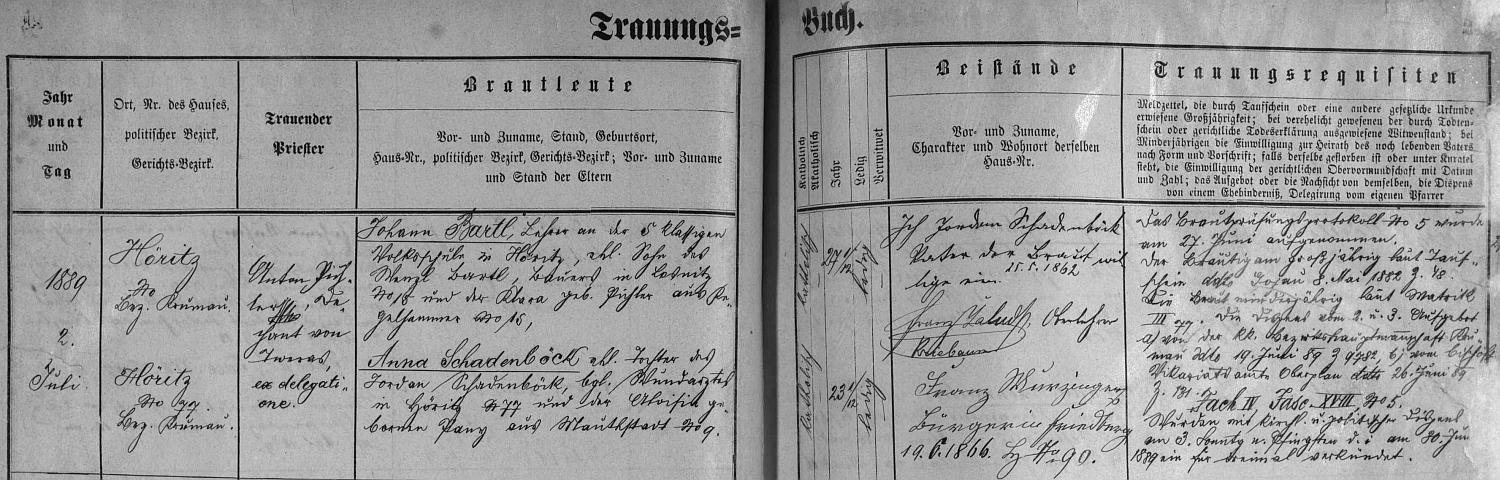 Trauungs=
Buch.
Jahr
Monat
und
Tag
Ort, Nr. des Hauses,
politischer Bezirk,
Gerichts-Bezirk.
Trauender
Priester
Brautleute
Vor- und Zuname, Stand, Geburtsort,
Haus-Nr., politischer Bezirk, Gerichts-Bezirk; Vor- und Zuname
und Stand der Eltern
Katholisch
Akatholisch
Jahr
Ledig
Verwitwet
Beistände
Vor- und Zuname,
Charakter und Wohnort derselben
Haus-Nr.
Trauungsrequisiten
Meldzettel, die durch Taufschein oder eine andere gesetzliche Urkunde
erwiesene Großjährigkeit; bei verehelicht gewesenen der durch Todten-
schein oder gerichtliche Todeserklärung ausgewiesene Witwenstand; bei
Minderjährigen die Einwilligung zur Heirath des noch lebenden Vaters
nach Form und Vorschrift; falls derselbe gestorben ist oder unter Kuratel
steht, die Einwilligung der gerichtlichen Obervormundschaft mit Datum
und Zahl; das Aufgebot oder die Nachsicht von demselben, die Dispens
von einem Ehehinderniß, Delegirung vom eigenen Pfarrer
1889
2.
Juli.
Höritz
No
Bez. Krumau.
Höritz
No 77.
Bez. Krumau.
Anton
De-
chant von
Tweras,
ex delegati-
one.
Johann Bartl, Lehrer an der 5 klassigen
Volksschule in Höritz, ehl. Sohn des
Wenzl Bartl, Bauers in
und der Klara geb. Pichler aus
No 15,
Anna Schadenböck, ehl. Tochter des
Jordan Schadenböck, bgl. Wundarztes
in Höritz N 77 und der Aloisia ge-
borenen Pany aus Mautstadt No 9.
katholisch
27 1/12
ledig
katholisch
23 1/12
ledig
Ich Jordan Schadenböck
Vater der Braut wil
lige ein.
25. 5. 1862
Franz
Oberlehrer
Franz Wurzinger
Bürger in Friedberg
19. 6. 1866. No 90.
Das Brautprüfungsprotokoll No 5 wurde
am 27. Juni aufgenommen.
Der Bräutigam großjährig laut Tauf-
schein ddto 8. Mai 1882 Z. 48.
Die Braut minderjährig laut Matrik
III 77. Die Dispens vom 2. u. 3. Aufgebot
a) von der kk. Bezirkshauptmannschaft Kru-
mau ddto 19. Juni 89 Z 9282, b) vom bischöfl.
Vikariatsamte Oberplan ddto 26. Juni 89
Z. 131. Fach IV, Fasc. XVIII No 5.
Wurden mit kirchl. u. politischer Dispens
am 3. Sonntg n. Pfingsten d. i. am 30. Juni
1889 ein für dreimal verkündet.